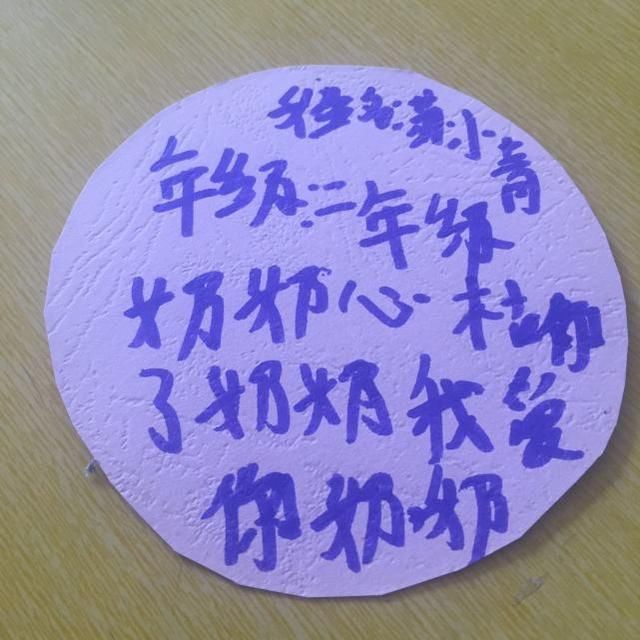 姓名:黄小青
年级:二年级
奶奶心枯你
了奶奶我爱
你奶奶